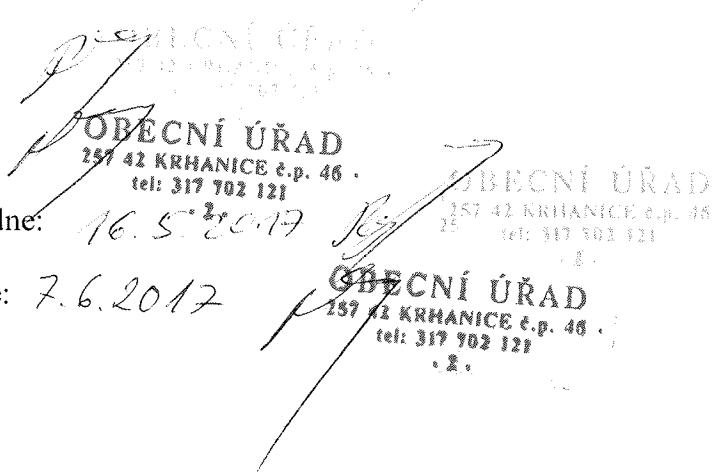 OBECNÍ ÚŘAD
OBECNÍ ÚŘAD
257 42 KRHANICE č.p. 46 .
tel: 317 702 121
. 2 .
dne: 16. 5. 2017
OBECNÍ ÚŘAD
257 42 KRHANICE č.p. 46
tel: 317 702 121
. 2 .
: 7. 6. 2017
OBECNÍ ÚŘAD
257 42 KRHANICE č.p. 46 .
tel: 317 702 121
. 2 .